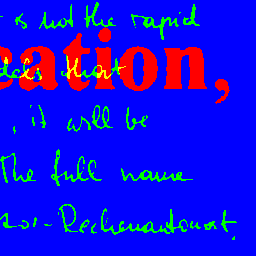 is not the rapid
eation,
that
, it will be
The full name
-Rechenautomat.